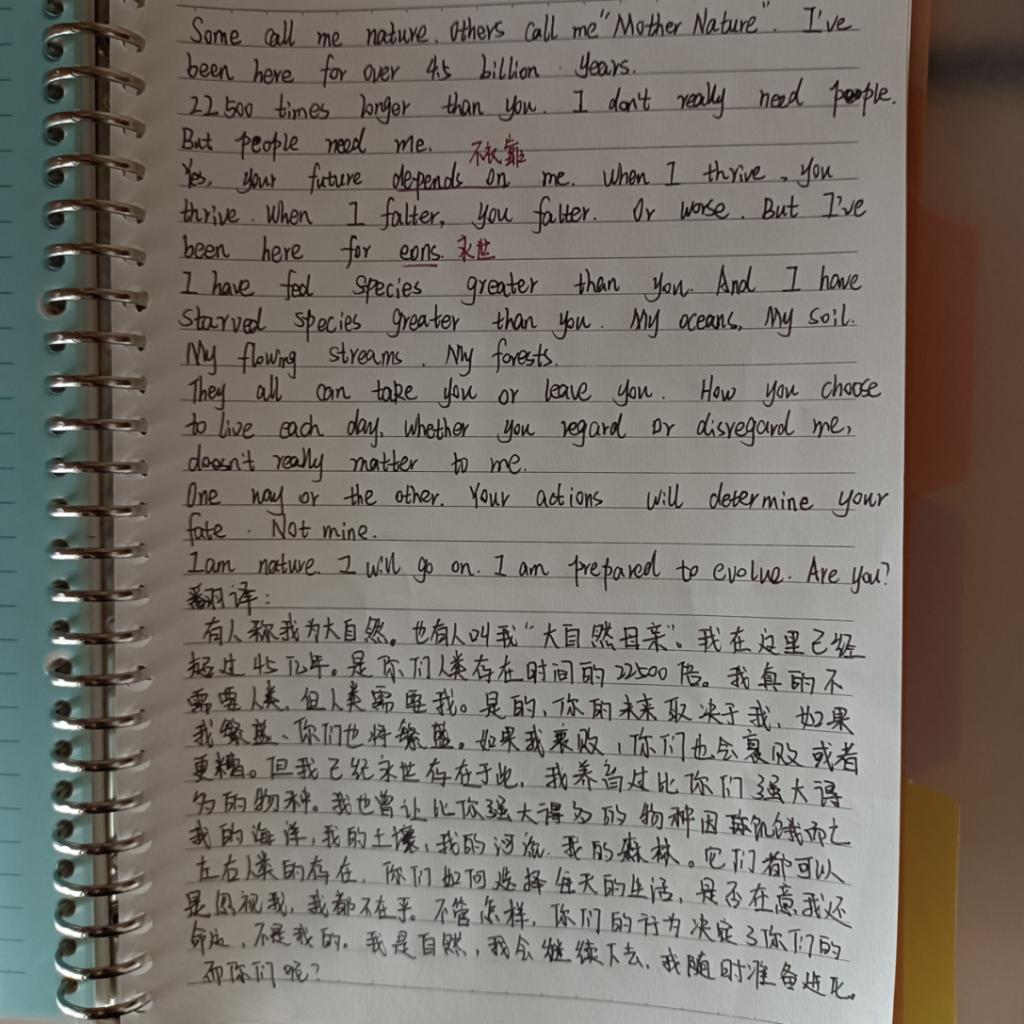 Some call me nature. Others call me "Mother Nature". I've
been here for over 4.5 billion years.
22.500 times longer than you. I don't really need people.
But people need me.
不衣靠
Yes, your future depends on me. When I thrive, you
thrive. When I falter, you falter. Or worse. But I've
been here for eons. 永世
I have fed species greater than you. And I have
starved species greater than you. My oceans, My soil.
My flowing streams. My forests.
They all can take you or leave you. How you choose
to live each day, whether you regard or disregard me,
doesn't really matter to me.
One way or the other. Your actions will determine your
fate. Not mine.
I am nature. I will go on. I am prepared to evolve. Are you?
翻译:
有人称我为大自然。也有人叫我"大自然母亲"。我在这里已经
超过45亿年。是你们人类存在时间的22500倍。我真的不
需要人类,但人类需要我。是的,你的未来取决于我,如果
我繁盛、你们也将繁盛。如果我衰败,你们也会衰败或者
更糟。但我已经永世存在于此,我养育过比你们强大得
多的物种。我也曾让比你强大得多的物种因 饥饿而亡
我的海洋,我的土壤,我的河流,我的森林。它们都可以
左右人类的存在,你们如何选择每天的生活,是否在意我还
是忽视我,我都不在乎。不管怎样,你们的行为决定了你们的
命运,不是我的。我是自然,我会继续下去,我随时准备进化。
而你们呢?